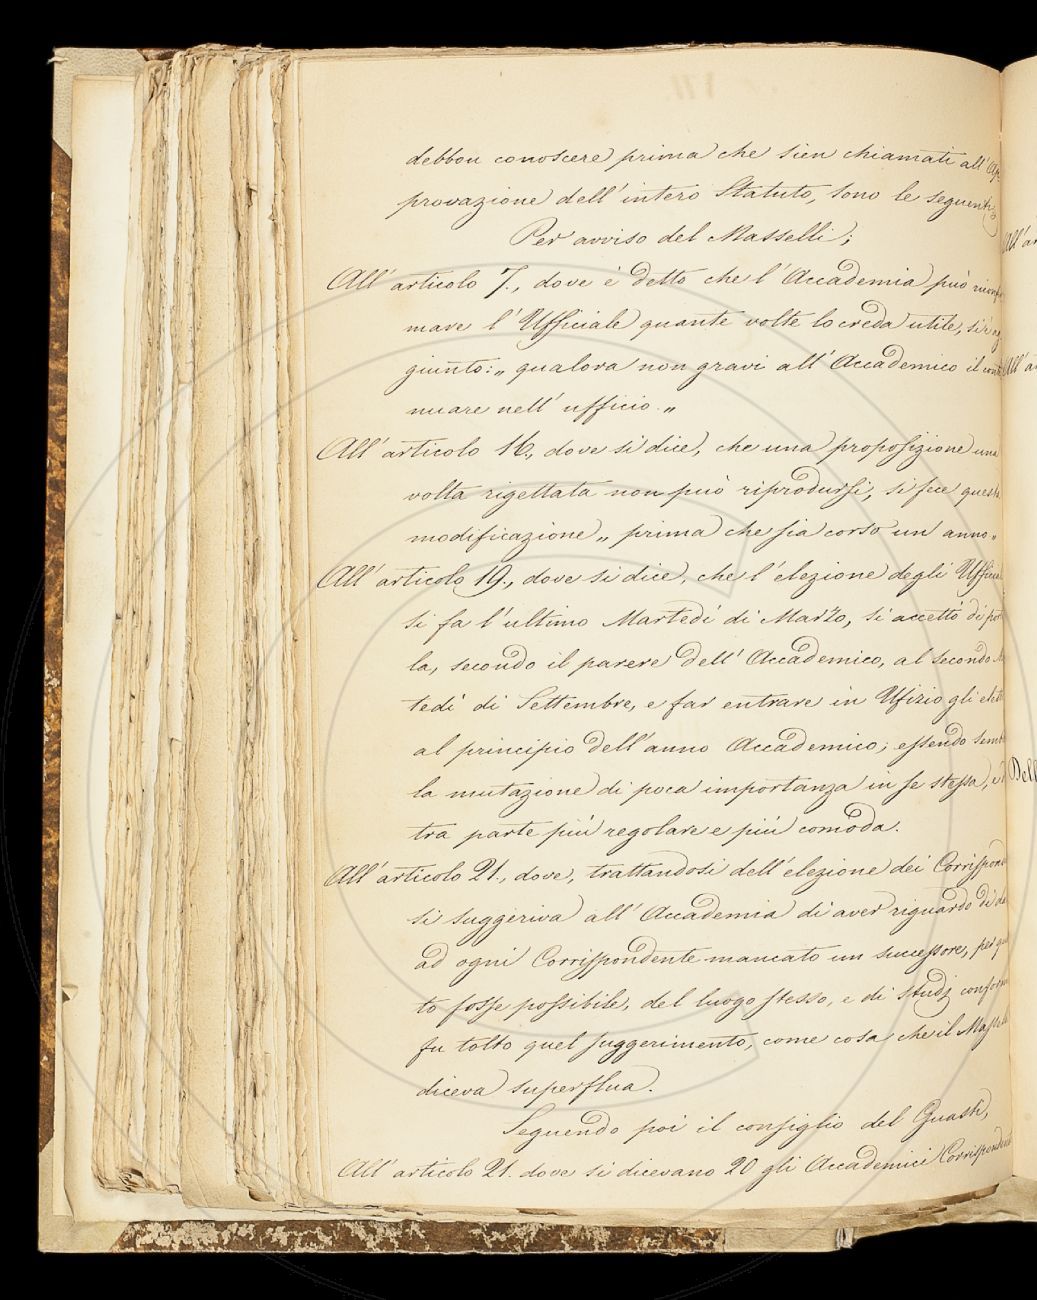 debbon conoscere prima che sien chiamati all' Ap-
provazione dell' intero Statuto, sono le seguenti
Per avviso del Masselli;
All' articolo 7., dove è detto che l' Accademia può riconfer
mare l' Ufficiale quante volte lo creda utile, si è ag
giunto: „ qualora non gravi all' Accademico il conti
nuare nell' ufficio. „
All' articolo 16., dove si dice, che una proposizione una
volta rigettata non può riprodursi, si fece questa
modificazione „ prima che sia corso un anno „
All' articolo 19., dove si dice, che l' elezione degli Ufficia
si fa l' ultimo Martedì di Marzo, si accettò di por
la, secondo il parere dell' Accademico, al secondo Mar
tedì di Settembre, e far entrare in Ufizio gli eletti
al principio dell' anno Accademico; essendo sembr
la mutazione di poca importanza in se stessa, e d'
tra parte più regolare e più comoda.
All' articolo 21., dove, trattandosi dell' elezione dei Corrispond
si suggeriva all' Accademia di aver riguardo di da
ad ogni Corrispondente mancato un successore, per qua
to fosse possibile, del luogo stesso, e di studj conform
fu tolto quel suggerimento, come cosa che il Masse
diceva superflua.
Seguendo poi il consiglio del Guasti,
All' articolo 21. dove si dicevano 20 gli Accademici Corrispondenti
All' ar
All' a
Dell